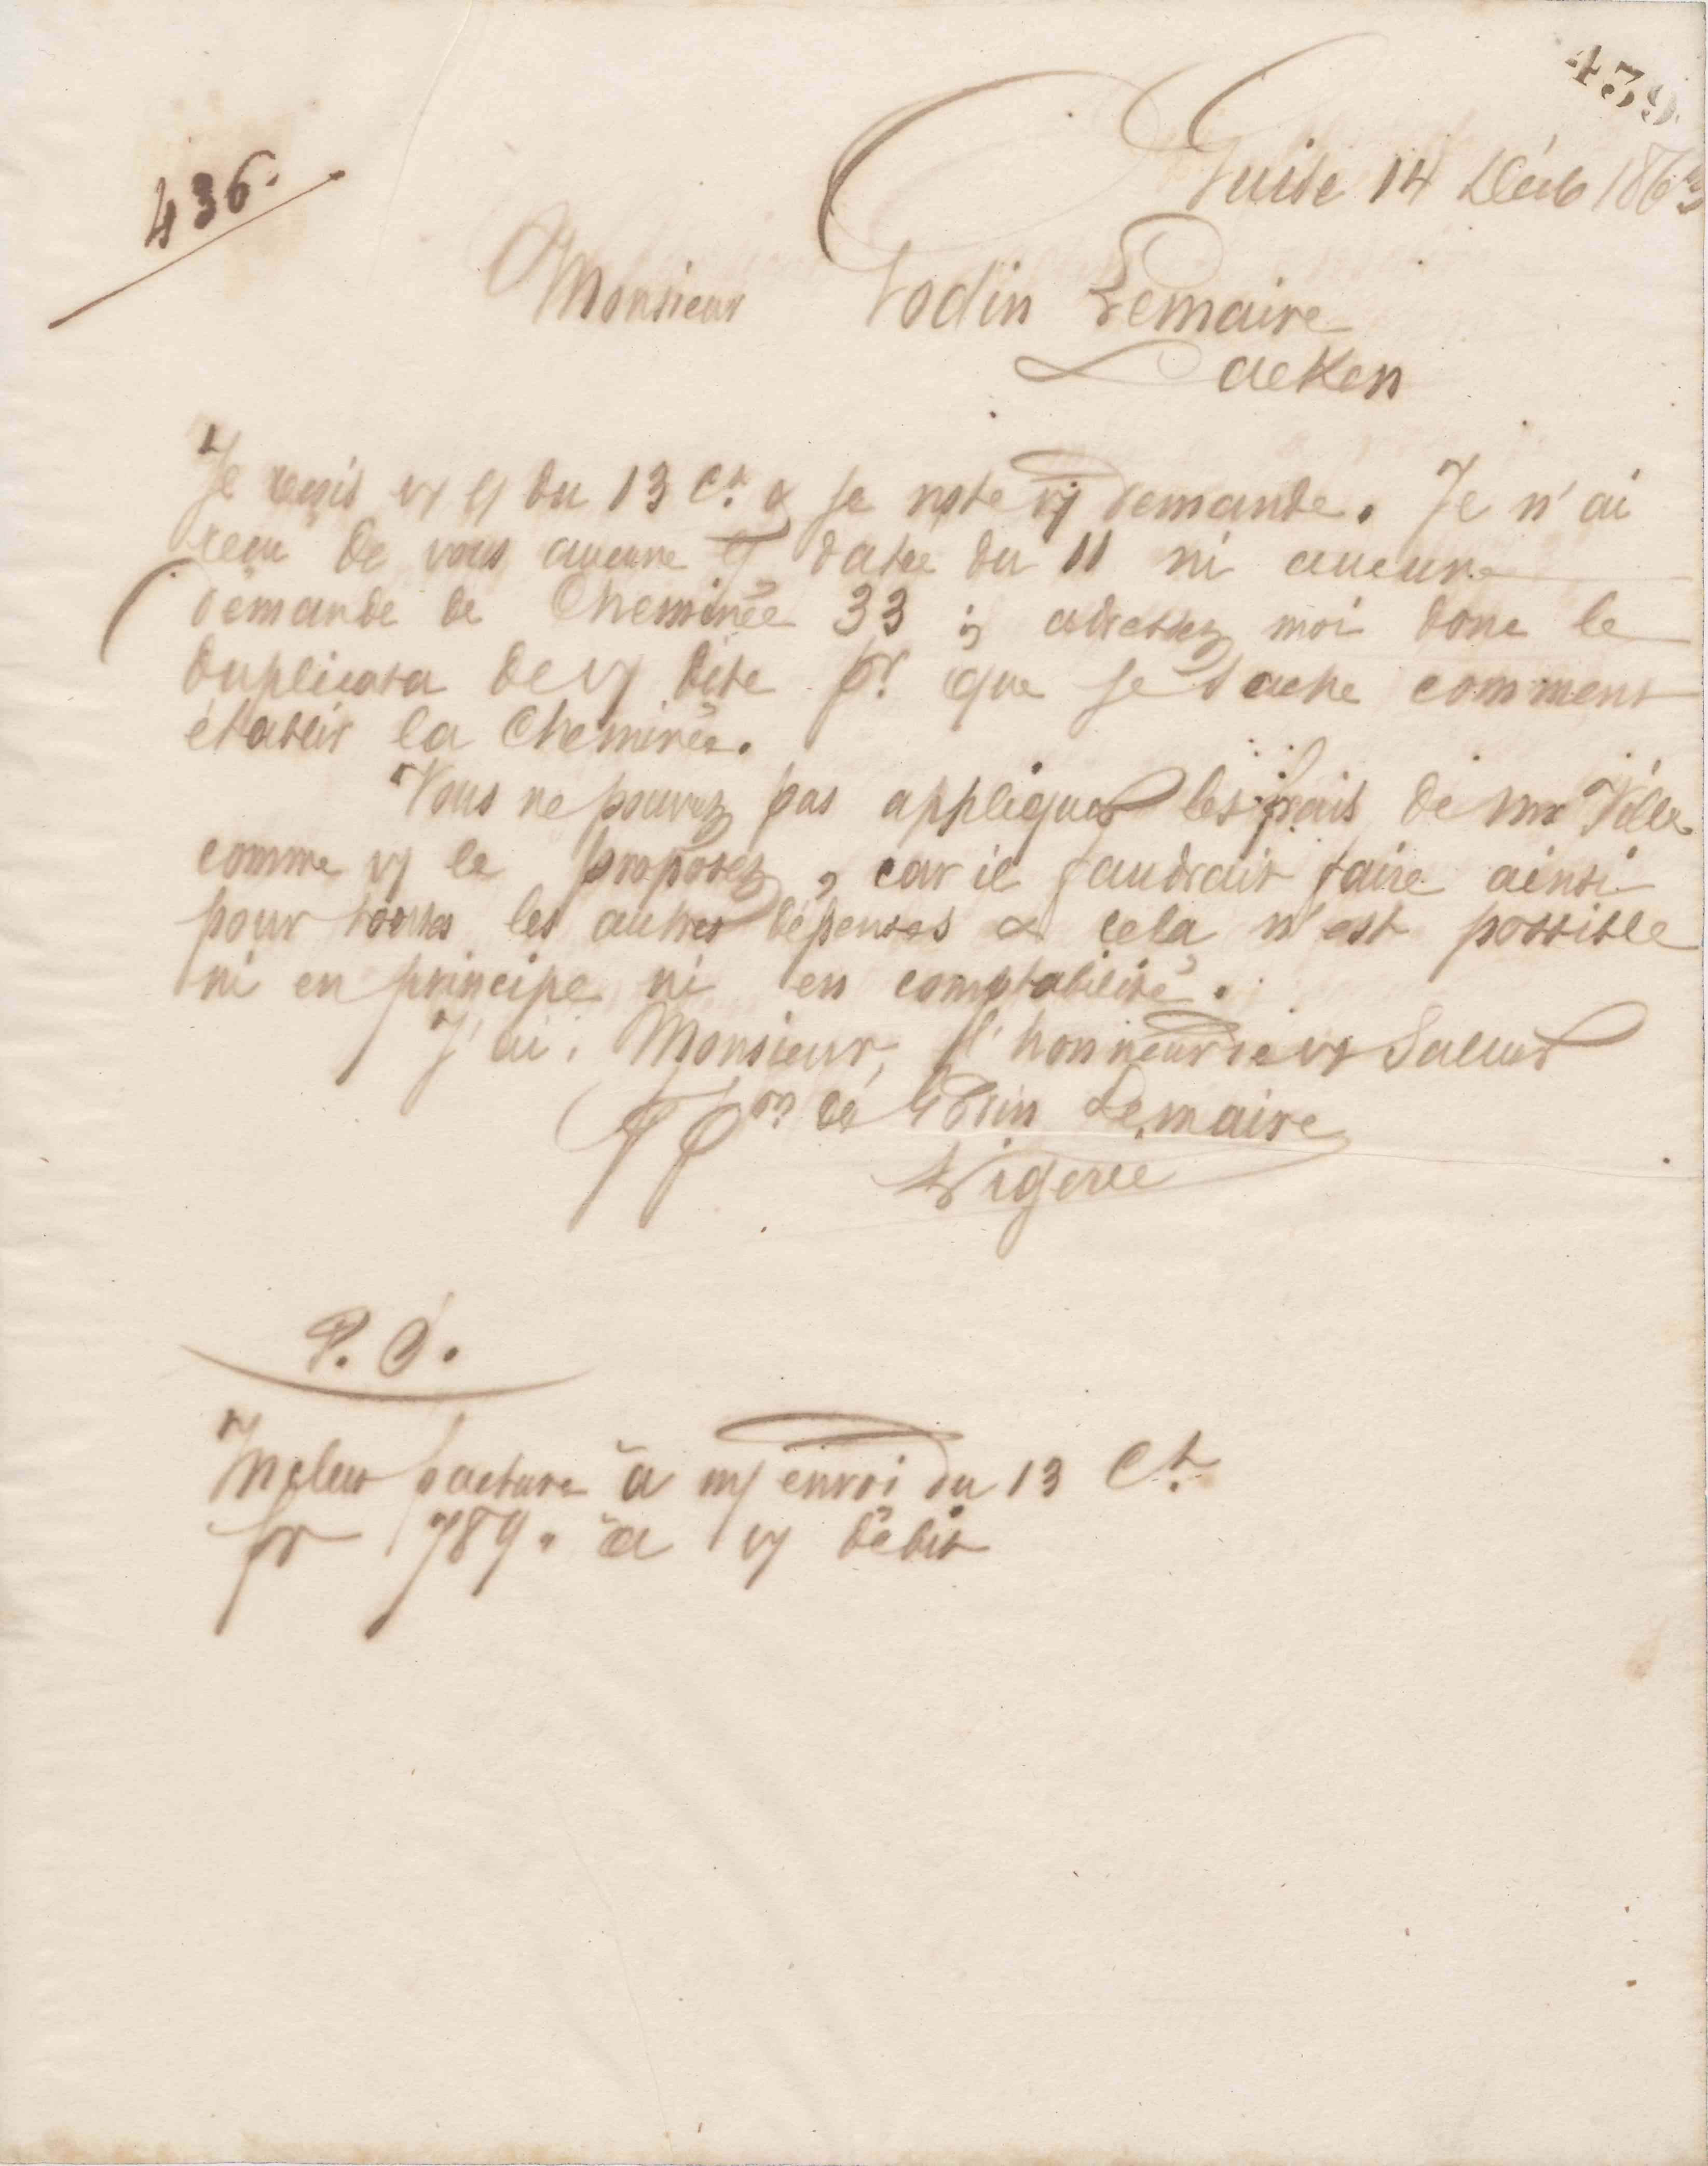 439
436.
Guise 14 Décb 1863
Monsieur Godin Lemaire
Laeken
Je reçois v/ l/ du 13 Ct. & je note v/ demande. Je n'ai
reçu de vous aucune l/ datée du 11 ni aucune
demande de Cheminée 33 ; adressez moi donc le
duplicata de v/ dite pr. que je sache comment
établir la Cheminée.
Vous ne pouvez pas appliquer les frais de Mr Ville
comme v/ le proposez, car il faudrait faire ainsi
pour toutes les autres dépenses & cela n'est possible
ni en principe ni en comptabilité.
J'ai, Monsieur, l'honneur de vs Saluer
Pr Pon de Godin Lemaire
P. S.
Inclus facture à m/ envoi du 13 Ct.
fr 789. à v/ débit